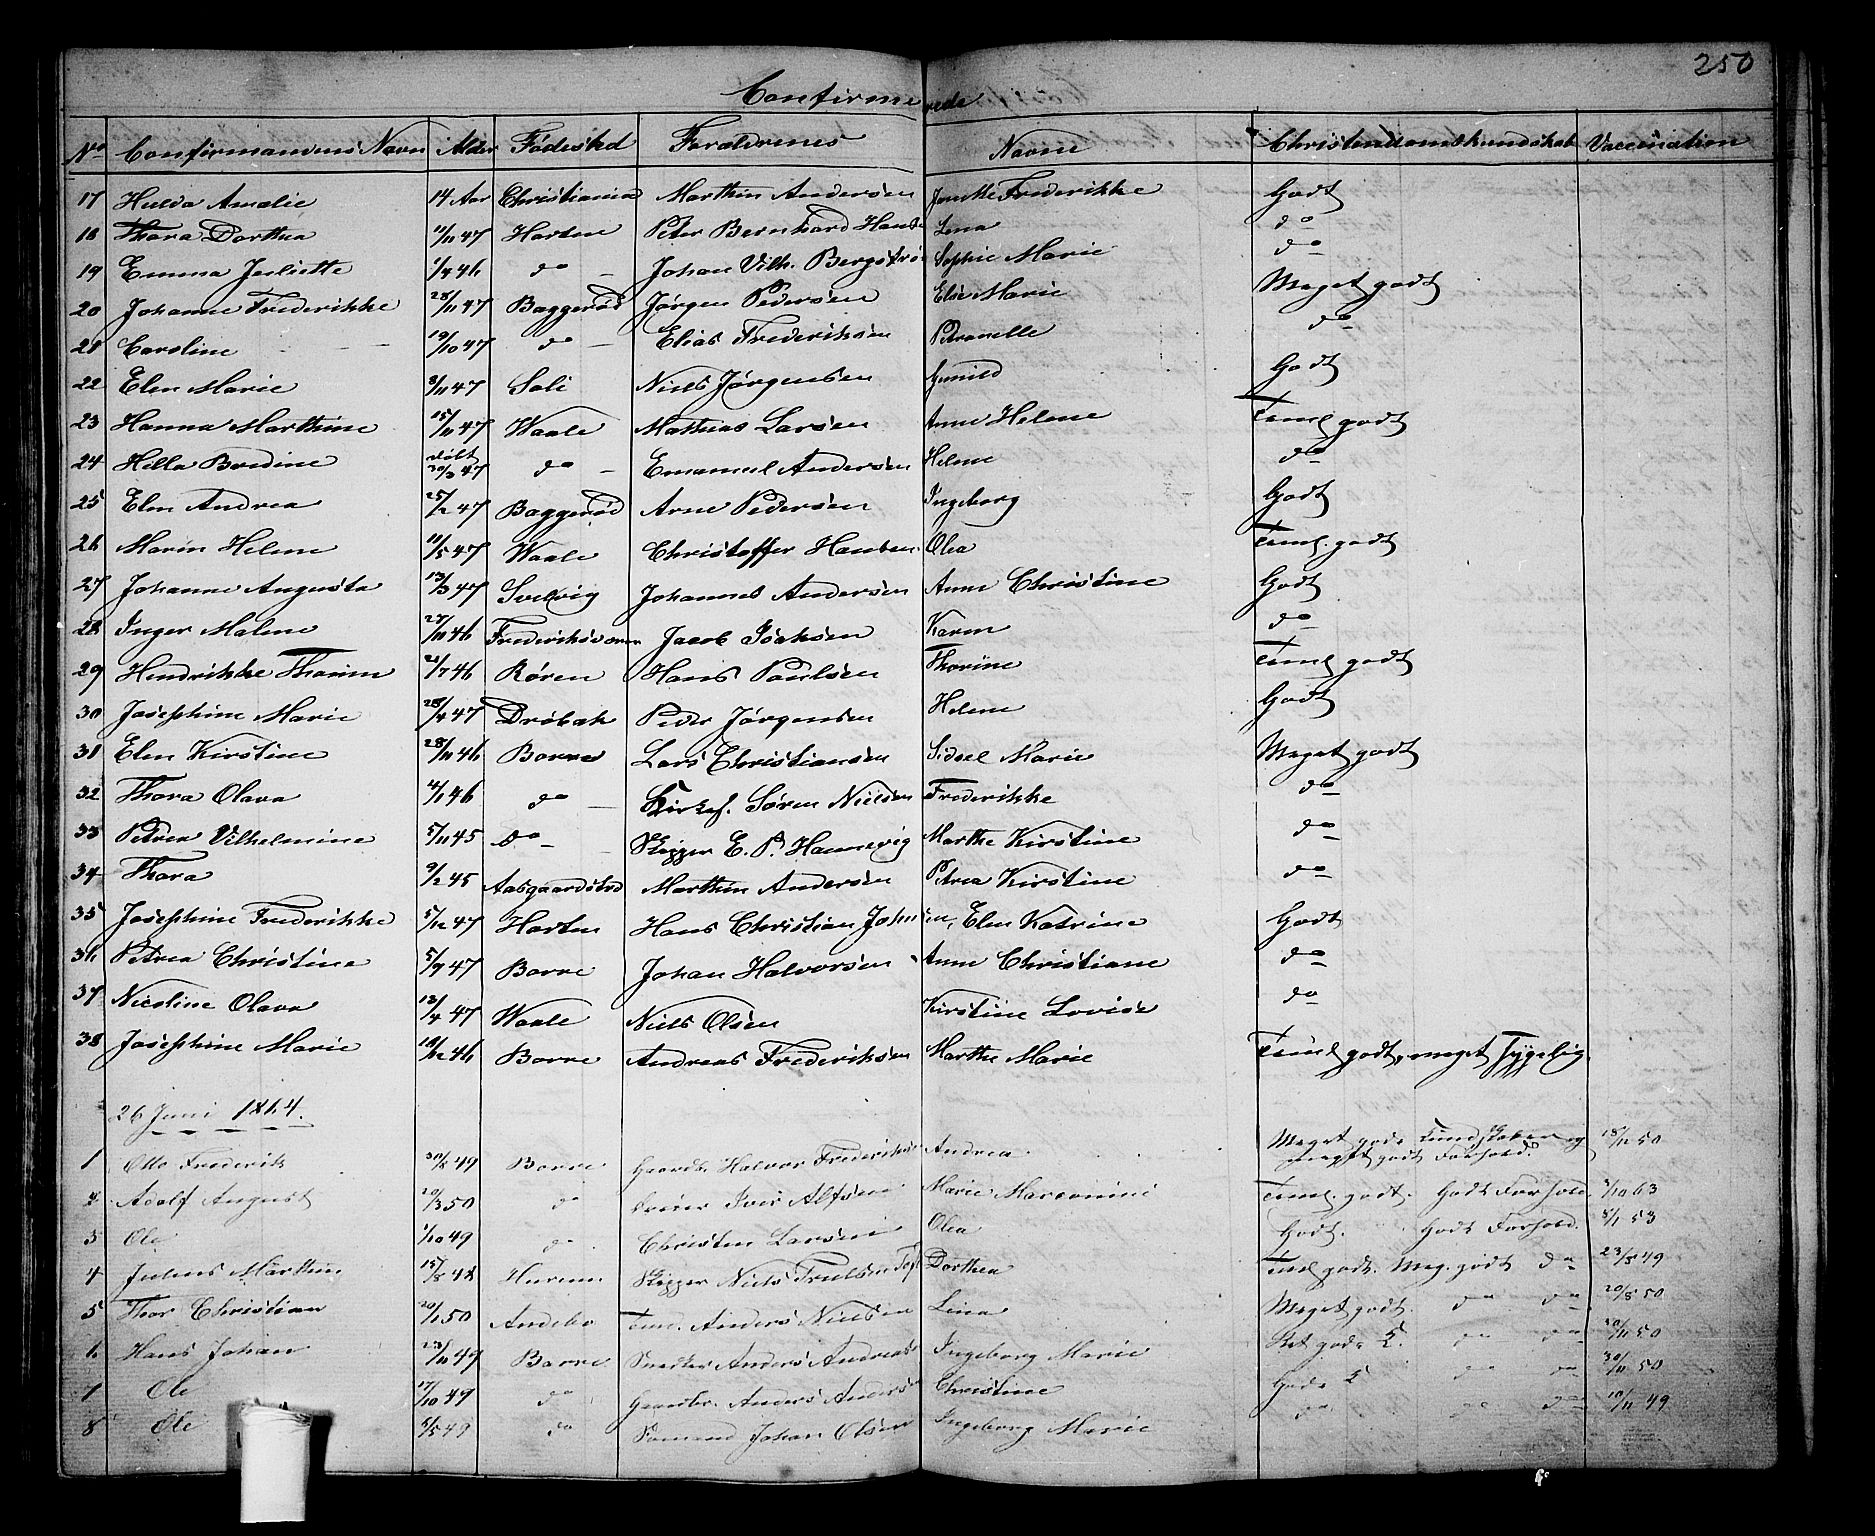 250
Confirmerede
No Confirmandens Navn Alder Fødested Forældrenes Navne Christendomskundskab Vaccination
17 Hulda Amalie 14 Aar Christiania Marthin Andersen Frederikke Godt
18 Thora Dorthea 11/11 47 Horten Peter Bernhard Hansen Lena do
19 Emma Juliette 1/4 46 do Johan Vilh. Bergstrøm Sophie Marie do
20 Johanne Frederikke 28/11 47 Baggerød Jørgen Pedersen Else Marie Meget godt
21 Caroline 19/10 47 do Elias Frederiksen Petronelle do
22 Elen Marie 3/11 47 Soli Niels Jørgensen Gunild Godt
23 Hanna Marthine 15/11 47 Waale Mathias Larsen Anne Helene Teml godt
24 Hilla Bredine døbt 30/3 47 do Emanuel Andersen Helene do
25 Elen Andrea 25/2 47 Baggerød Arne Pedersen Ingeborg Godt
26 Marin Helene 11/5 47 Waale Christoffer Hansen Olea Teml. godt
27 Johanne Augusta 13/3 47 Svelvig Johannes Andersen Anne Christine Godt
28 Inger Malene 27/11 46 Frederiksværn Jacob Isaksen Karen do
29 Hendrikke Thorine 21/7 46 Røren Hans Paulsen Thorine Teml godt
30 Josephine Marie 28/4 47 Drøbak Peder Jørgensen Helene Godt
31 Elen Kirstine 28/11 46 Borre Lars Christiansen Sidsel Marie Meget godt
32 Thora Olava 4/1 46 do Kirkes. Søren Nielsen Frederikke do
33 Petrea Vilhelmine 5/11 45 do Skipper E. P. Hannevig Marthe Kirstine do
34 Thora 9/2 45 Aasgaardstrd Marthin Andersen Petrea Kirstine do
35 Josephine Frederikke 5/12 47 Horten Hans Christian Johnsen, Elen Katrine Godt
36 Petrea Christine 5/9 47 Borre Johan Halvorsen Anne Christiane do
37 Nicoline Olava 13/4 47 Waale Niels Olsen Kirstine Lovise do
38 Josephine Marie 18/12 46 Borre Andreas Frederiksen Marthe Marie Teml godt, meget sygelig
26 Juni 1864.
1 Otto Frederik 30/8 49 Borre Gaardbr. Halvor Frederiksen Andrea Meget gode Kundskaber og 18/11 50
meget godt Forhold.
2 Adolf August 20/3 50 do Iver Alfsen Marie Teml. godt. Godt Forhold 3/10 63
3 Ole 1/10 49 do Christen Larsen Olea Godt. Godt Forhold. 8/1 53
4 Julius Marthin 15/8 48 Hurum Skipper Niels Truelsen Dorthea Teml godt. Meg. godt do 23/8 49
5 Thor Christian 20/1 50 Andebo Anders Niels Lina Meget godt. do do 20/8 50
6 Hans Johan 23/11 47 Borre Snedker Anders Andreas Ingeborg Marie Ret gode K. do do 20/11 50
7 Ole 17/10 49 do Gaardbr. Anders Anders Christine Gode K do do 30/11 50
8 Ole 5/5 49 do Sømand Johan Olsen Ingeborg Marie do do do 10/11 49